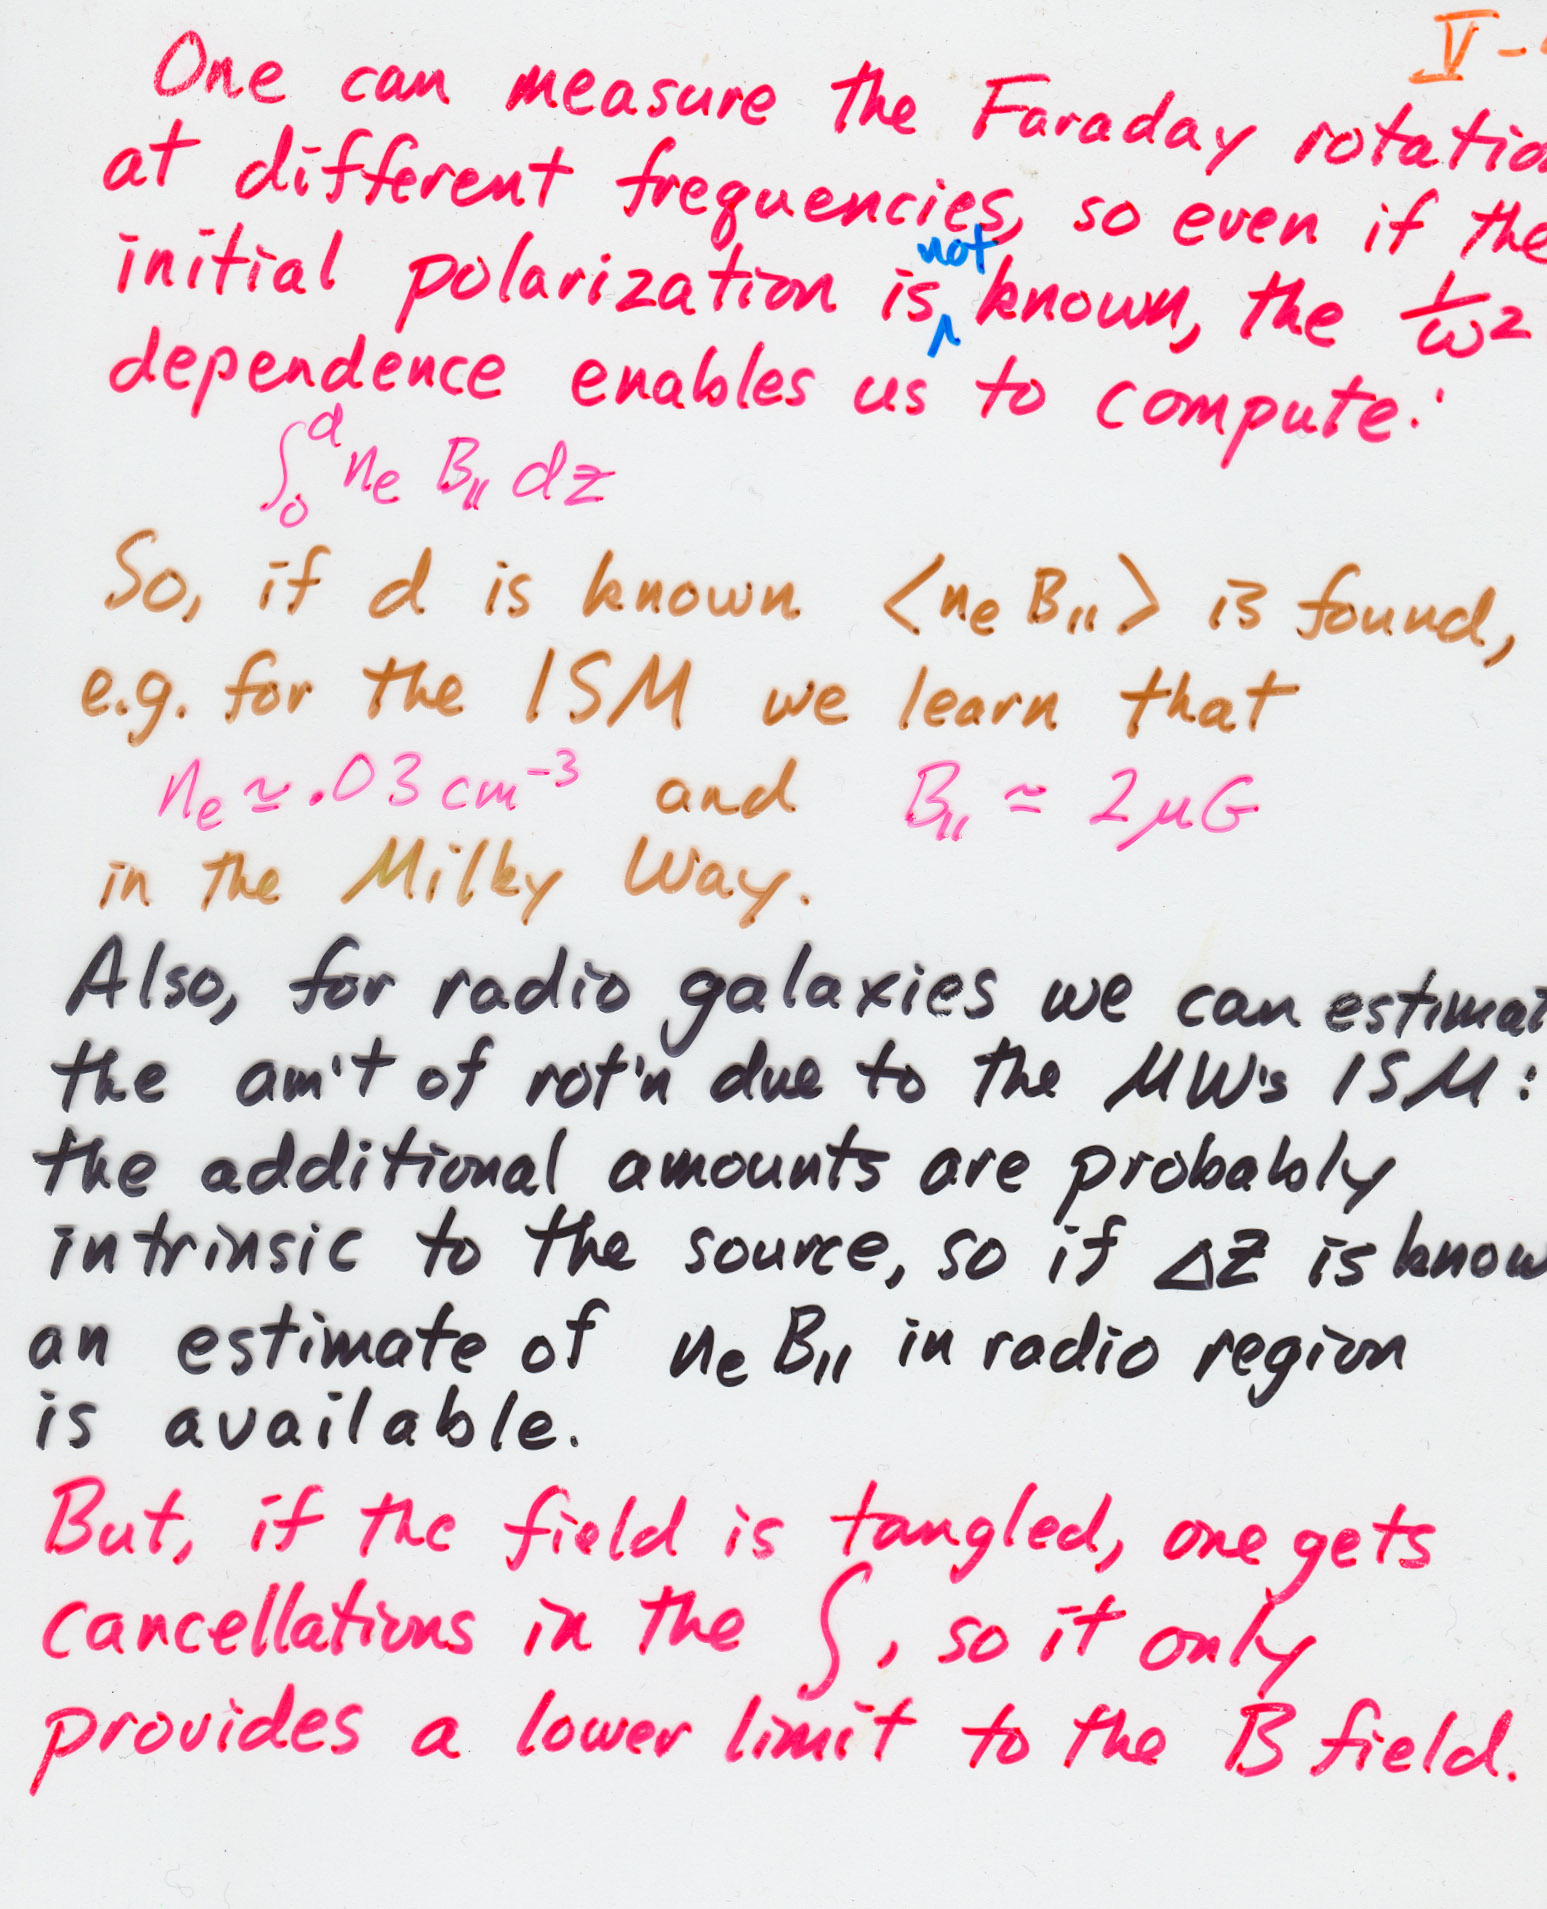 V-
One can measure the Faraday rotatio
at different frequencies, so even if the
initial polarization is not known, the 1/ω²
dependence enables us to compute:
∫₀ᵈ nₑ B₁₁ dz
So, if d is known <nₑ B₁₁> is found,
e.g. for the ISM we learn that
nₑ ≃ .03 cm⁻³ and B₁₁ ≃ 2μG
in the Milky Way.
Also, for radio galaxies we can estimat
the am't of rot'n due to the MW's ISM:
the additional amounts are probably
intrinsic to the source, so if ΔZ is know
an estimate of nₑ B₁₁ in radio region
is available.
But, if the field is tangled, one gets
cancellations in the ∫, so it only
provides a lower limit to the B field.